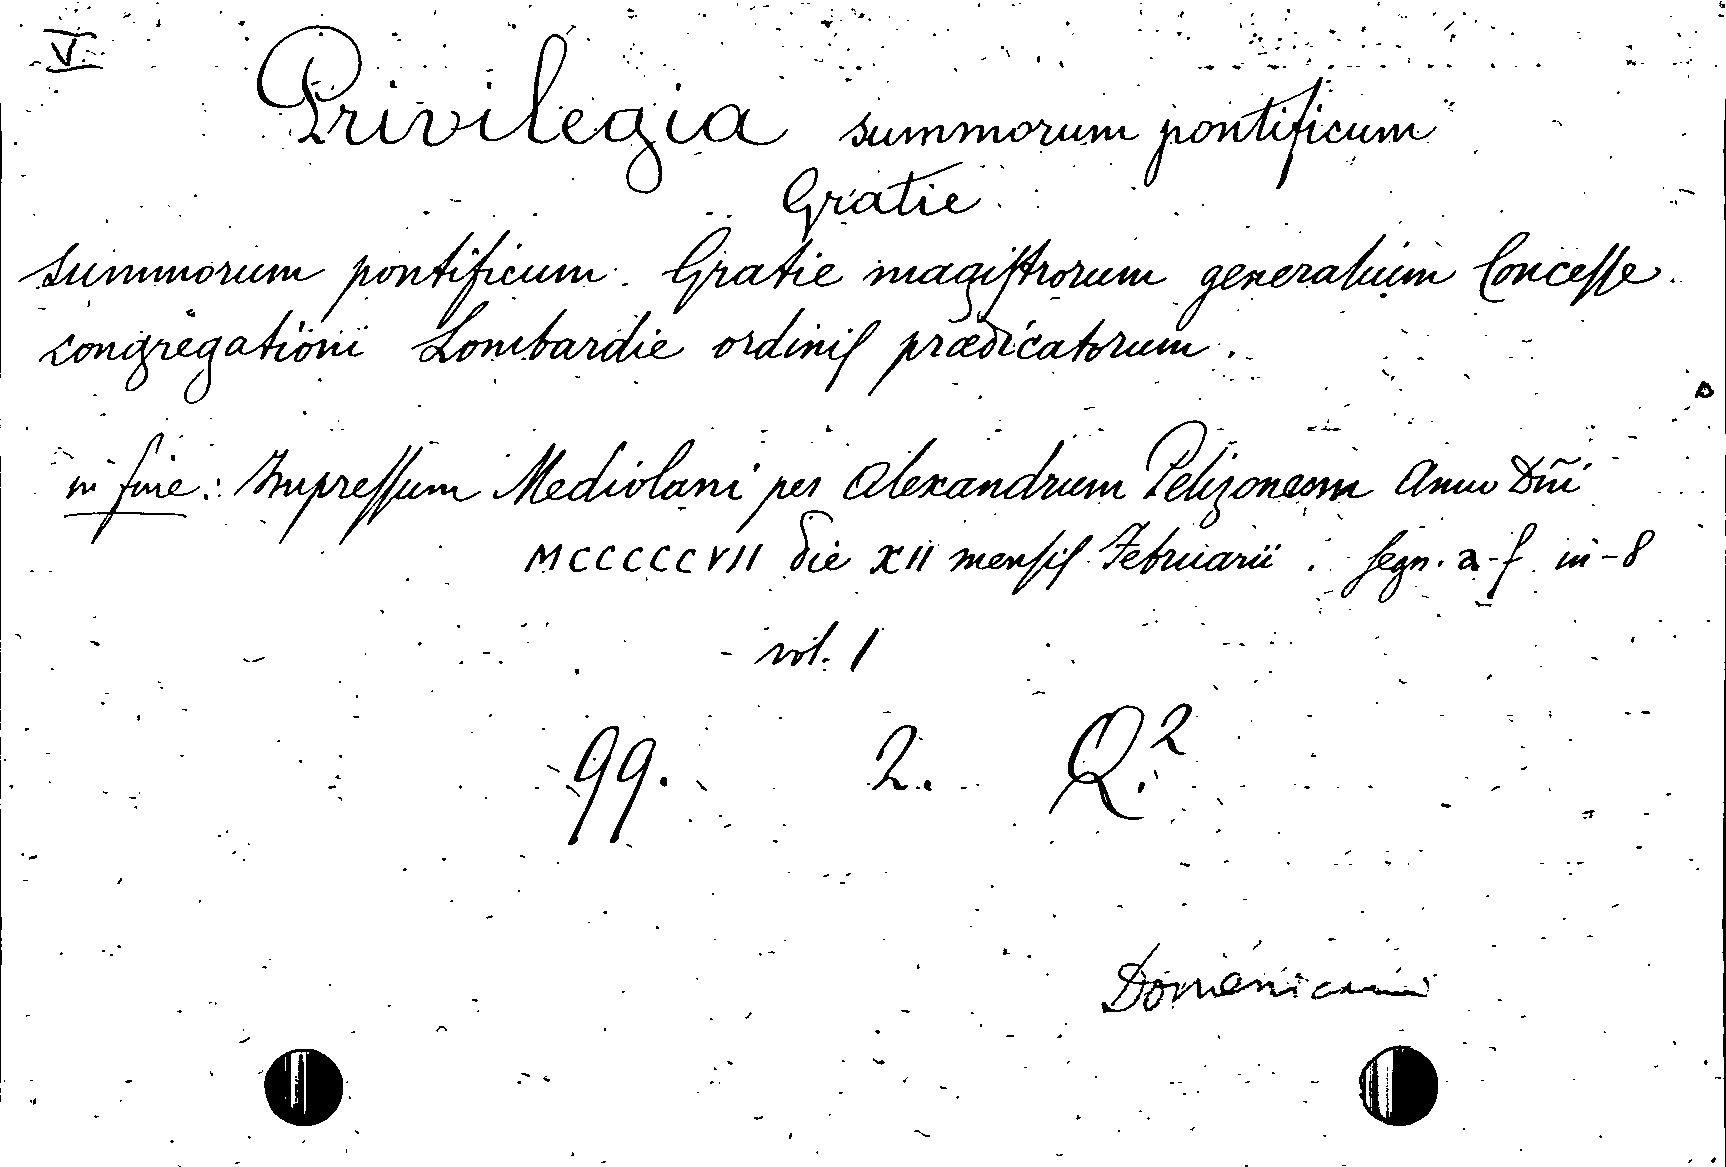 V
Privilegia summorum pontificum
Gratie
summorum pontificum. Gratie magiſtrorum generalium Conceſſe
congregationi Lombardie ordiniſ prædicatorum.
in fine: Impreſſum Mediolani per Alexandrum Pelizonem Anno Dñi
MCCCCCVII die XII menſiſ Februarii. ſegn. a-f in-8
vol. 1
99. 2. Q.²
Domenicani